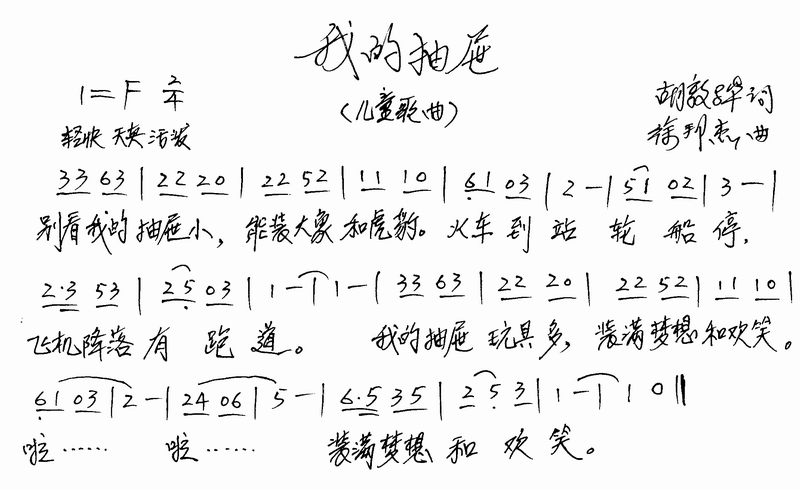 我的抽屉
(儿童歌曲)
1=F 2/4
胡敦骅词
轻快 天真 活泼
徐邦杰曲
33 63 | 22 20 | 22 52 | 11 10 | 61 03 | 2 - | 51 02 | 3 - |
别看我的抽屉小，能装大象和虎豹。火车到站轮船停，
2·3 53 | 25 03 | 1 - | 1 - | 33 63 | 22 20 | 22 52 | 11 10 |
飞机降落有跑道。 我的抽屉玩具多，装满梦想和欢笑。
61 03 | 2 - | 24 06 | 5 - | 6·5 35 | 2 5 3 | 1 - | 1 0 ‖
啦…… 啦…… 装满梦想和欢笑。